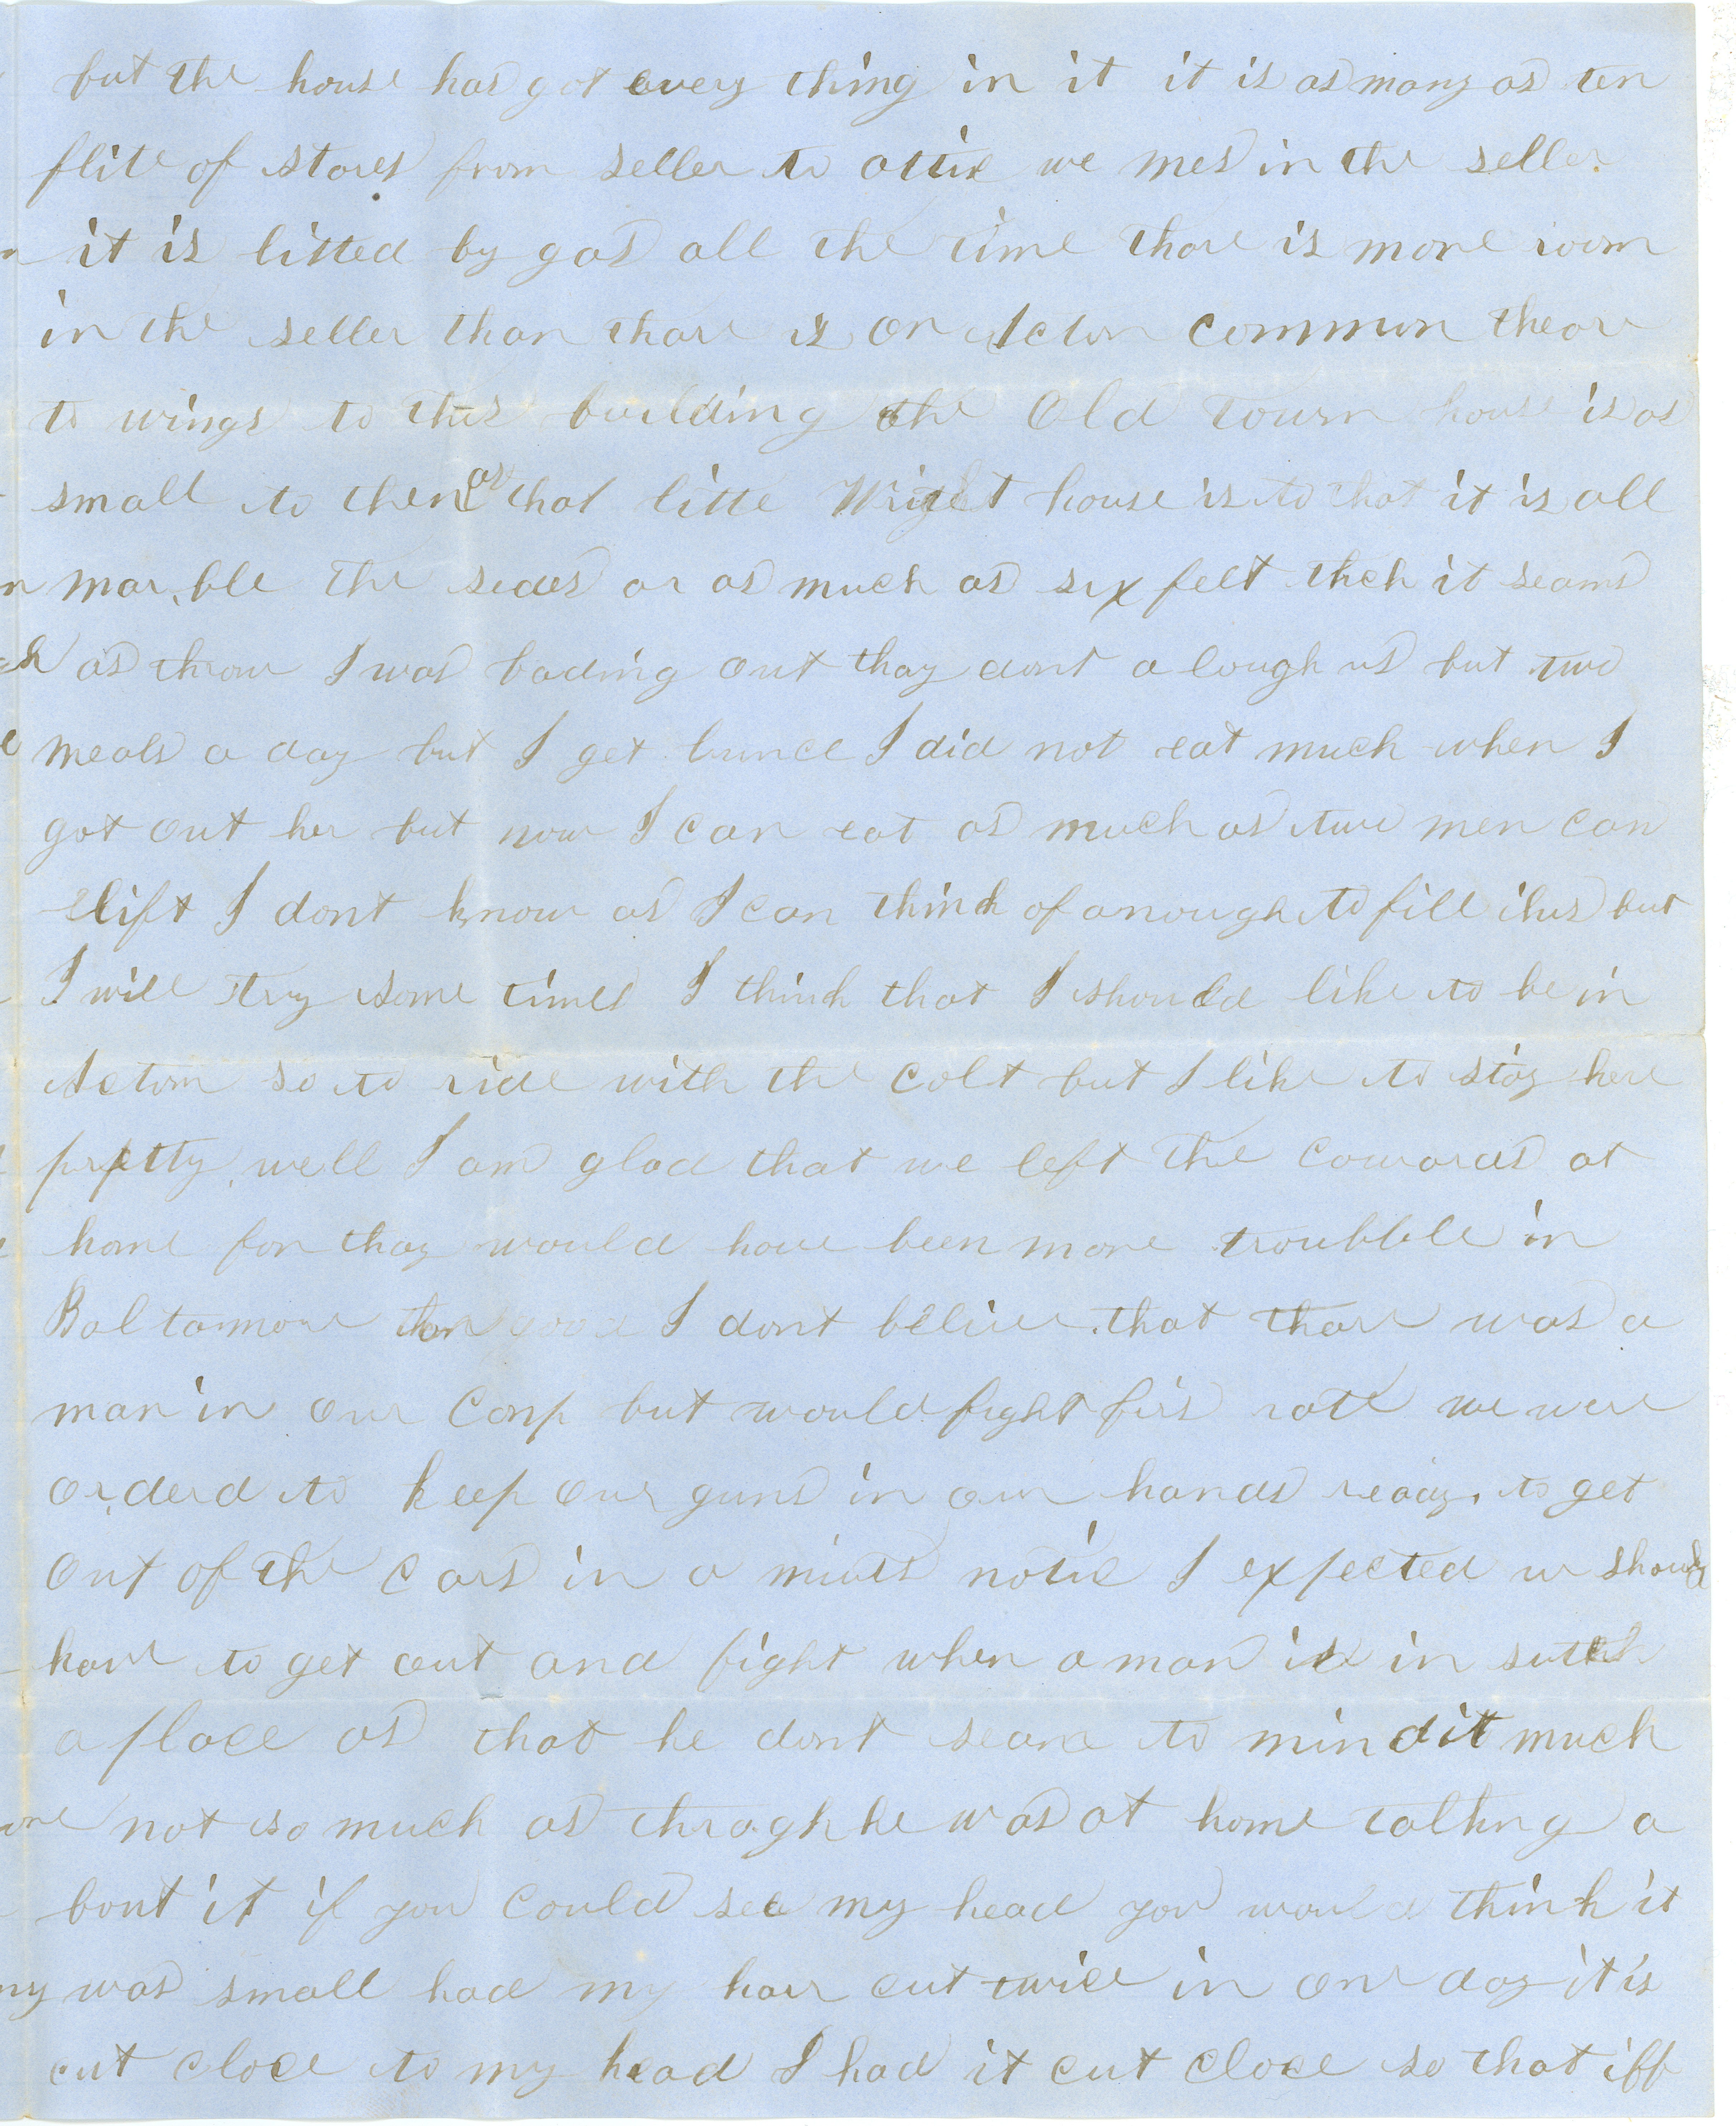 but the house has got every thing in it it is as many as ten
flite of stares from seller to attic we mes in the seller
it is litted by gas all the time thare is more room
in the seller than thare is on Acton common theare
to wings to this building the Old Town house is as
small to them as that litte Wright house is to that it is all
marble the sides ar as much as six feet thck it seams
as throw I was bading out thay dont a lough us but two
meals a day but I get lunce I did not eat much when I
got out her but now I can eat as much as two men can
lift I dont know as I can think of anough to fill thus but
I will try some times I think that I shoulde like to be in
Acton so to ride with the colt but I like to stay here
pretty well I am glad that we left the cowards at
home for thay would have been more troubble in
Baltamore than good I dont belive that thare was a
man in our Comp but would fight firs rate we were
orderd to keep our guns in our hands ready to get
out of the cars in a minuts notic I expected we should
have to get out and fight when a man is in sutch
a place as that he dont seame to mind it much
not so much as thragh he was at home talkng a
bout it if you could see my head you would think it
was small had my hair cut twice in one day it is
cut close to my head I had it cut close so that iff